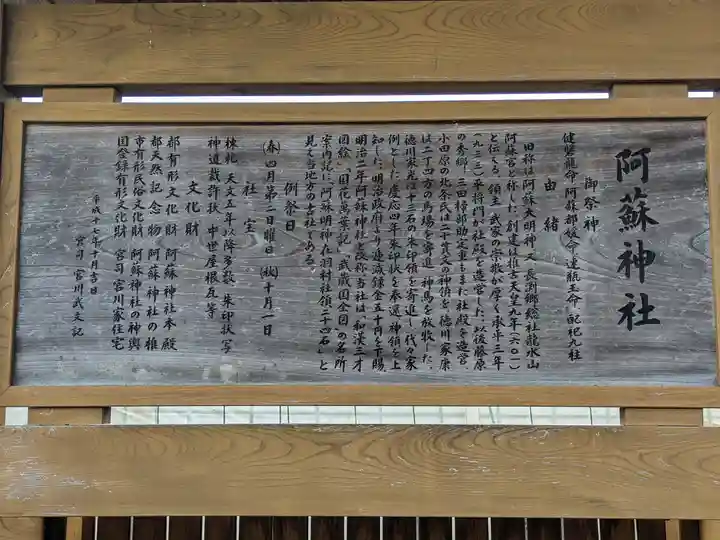 阿蘇神社
御祭神
健磐龍命 阿蘇都媛命 速瓶玉命 配祀九柱
由緒
旧称は阿蘇大明神、又、長渕郷総社龍水山
阿蘇宮と称した。創建は推古天皇九年(六〇一)
と伝える。領主、武家の宗敬が厚く承平三年
(九三三)平将門が社殿を造営した。以後藤原
の秀郷、三田禅部助定重もまた社殿を造営、
小田原の北条氏は二十貫文の神領を、徳川家康
は二丁四方の馬場を寄進、神馬を放牧した。
徳川家光は十三石の朱印領を寄進し、代々家
例とした。慶応四年朱印状を奉還、神領を上
知した。明治政府より逓減録金五十円を下賜、
明治二年阿蘇神社と改称。当社は「和漢三才
図絵」「国花萬葉記」「武蔵国全図」の名所
案内記に「阿蘇明神在羽村社領二十四石」と
見え当地方の古社である。
例祭日
(春)四月第二日曜日 (秋)十月一日
社宝
棟札 天文五年以降多数、朱印状写
神道裁許状、中世屋根瓦等
文化財
都有形文化財 阿蘇神社本殿
都天然記念物 阿蘇神社の椎
市有形民俗文化財 阿蘇神社の神輿
国登録有形文化財 宮司 宮川家住宅
平成十七年十月吉日
宮司 宮川武文記